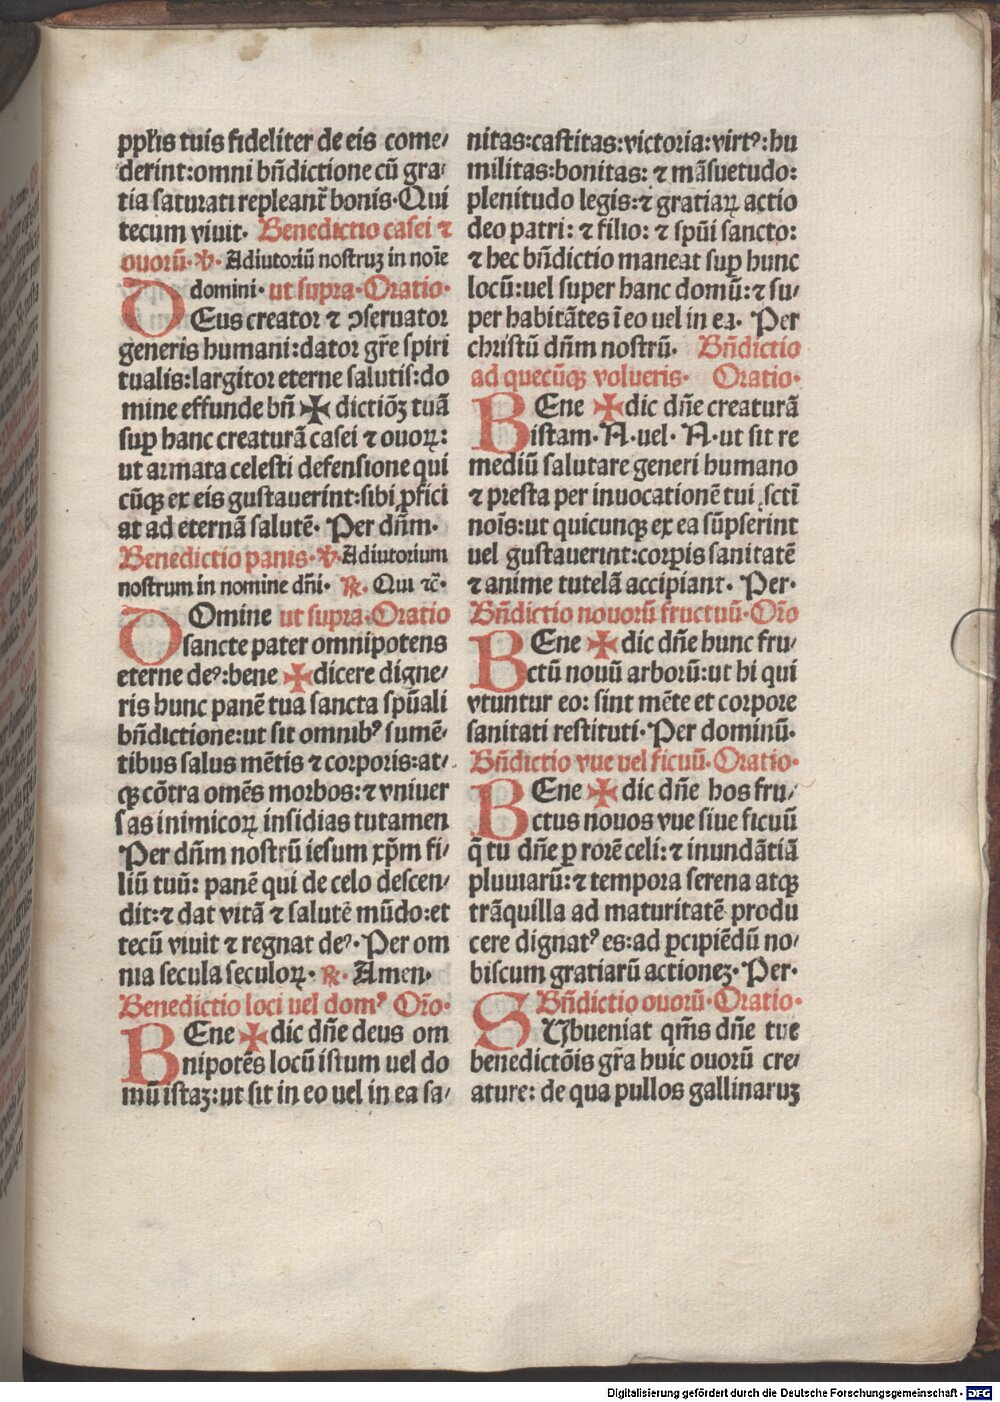 ppl̄is tuis fideliter de eis come⸗
derint:omni bn̄dictione cū gra⸗
tia saturati repleant̄ bonis·Qui
tecum viuit· Benedictio casei ⁊
ouorū·℣· Adiutoriū nostruꝫ in noīe
domini· ut supra·Oratio·
DEus creator ⁊ ꝯseruator
generis humani:dator gr̄e spiri
tualis:largitor eterne salutis:do
mine effunde bn̄ ✠ dictiōꝫ tuā
suꝑ hanc creaturā casei ⁊ ouoꝝ:
ut armata celesti defensione qui
cūqꝫ ex eis gustauerint:sibi ꝓfici
at ad eternā salutē· Per dn̄m·
Benedictio panis·℣·Adiutorium
nostrum in nomine dn̄i· ℟· Qui ⁊c̄·
DOmine ut supra·Oratio
sancte pater omnipotens
eterne deꝰ:bene ✠dicere digne⸗
ris hunc panē tua sancta spūali
bn̄dictione:ut sit omnibꝰ sumē⸗
tibus salus mētis ⁊ corporis:at⸗
qꝫ cōtra omēs morbos:⁊ vniuer
sas inimicoꝝ insidias tutamen
Per dn̄m nostrū iesum xp̄m fi⸗
liū tuū: panē qui de celo descen⸗
dit:⁊ dat vitā ⁊ salutē mūdo:et
tecū viuit ⁊ regnat deꝰ·Per om
nia secula seculoꝝ· ℟· Amen·
Benedictio loci uel domꝰ Or̄o·
BEne ✠dic dn̄e deus om
nipotēs locū istum uel do
mū istaꝫ:ut sit in eo uel in ea sa⸗
nitas:castitas:victoria:virtꝰ:hu
militas:bonitas: ⁊ māsuetudo:
plenitudo legis:⁊ gratiaꝝ actio
deo patri: ⁊ filio: ⁊ spūi sancto:
⁊ hec bn̄dictio maneat suꝑ hunc
locū:uel super hanc domū:⁊ su⸗
per habitātes ī eo uel in ea· Per
christū dn̄m nostrū· Bn̄dictio
ad quecūqꝫ volueris· Oratio·
BEne ✠dic dn̄e creaturā
istam·N·uel· N·ut sit re
mediū salutare generi humano
⁊ presta per inuocationē tui sctī
noīs:ut quicunqꝫ ex ea sūpserint
uel gustauerint:corꝑis sanitatē
⁊ anime tutelā accipiant· Per·
Bn̄dictio nouorū fructuū·Or̄o
BEne ✠ dic dn̄e hunc fru⸗
ctū nouū arborū:ut hi qui
vtuntur eo: sint mēte et corpore
sanitati restituti·Per dominū·
Bn̄dictio vue uel ficuū·Oratio·
BEne ✠ dic dn̄e hos fru⸗
ctus nouos vue siue ficuū
q̄ tu dn̄e ꝑ rorē celi:⁊ inundātiā
pluuiarū:⁊ tempora serena atqꝫ
trāquilla ad maturitatē produ
cere dignatꝰ es:ad ꝑcipiēdū no⸗
biscum gratiarū actioneꝫ·Per·
Bn̄dictio ouorū·Oratio·
SUbueniat qm̄s dn̄e tue
benedictōis gr̄a huic ouorū cre⸗
ature: de qua pullos gallinaruꝫ
Digitalisierung gefördert durch die Deutsche Forschungsgemeinschaft - DFG